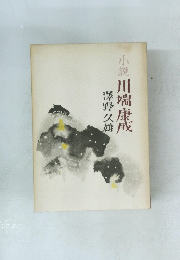 小説
川端康成
澤野久雄